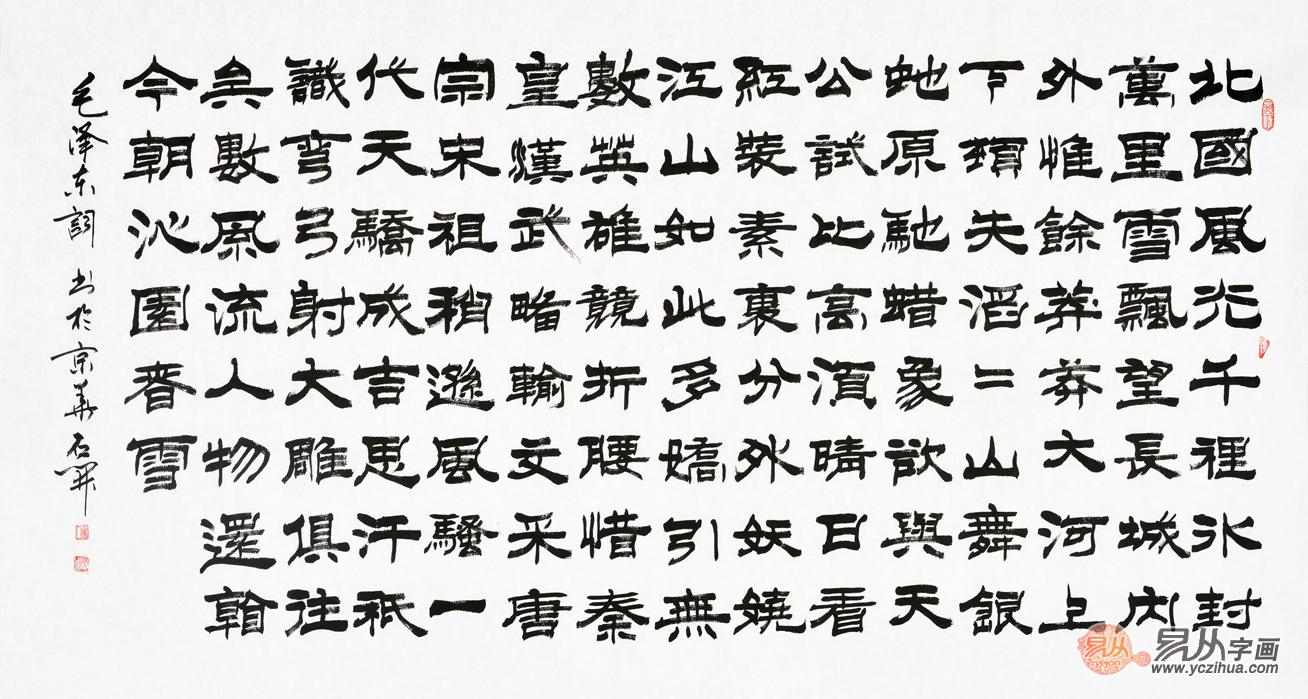 北國風光千裡冰封
萬里雪飄望長城內
外惟餘莽莽大河上
下頓失滔〻山舞銀
蛇原馳蜡象欲與天
公試比高須晴日看
紅裝素裹分外妖嬈
江山如此多嬌引無
數英雄競折腰惜秦
皇漢武略輸文采唐
宗宋祖稍遜風騷一
代天驕成吉思汗祇
識彎弓射大雕俱往
矣數風流人物還看
今朝沁園春雪
毛泽东詞书於京華石開
易从字画
www.yczihua.com